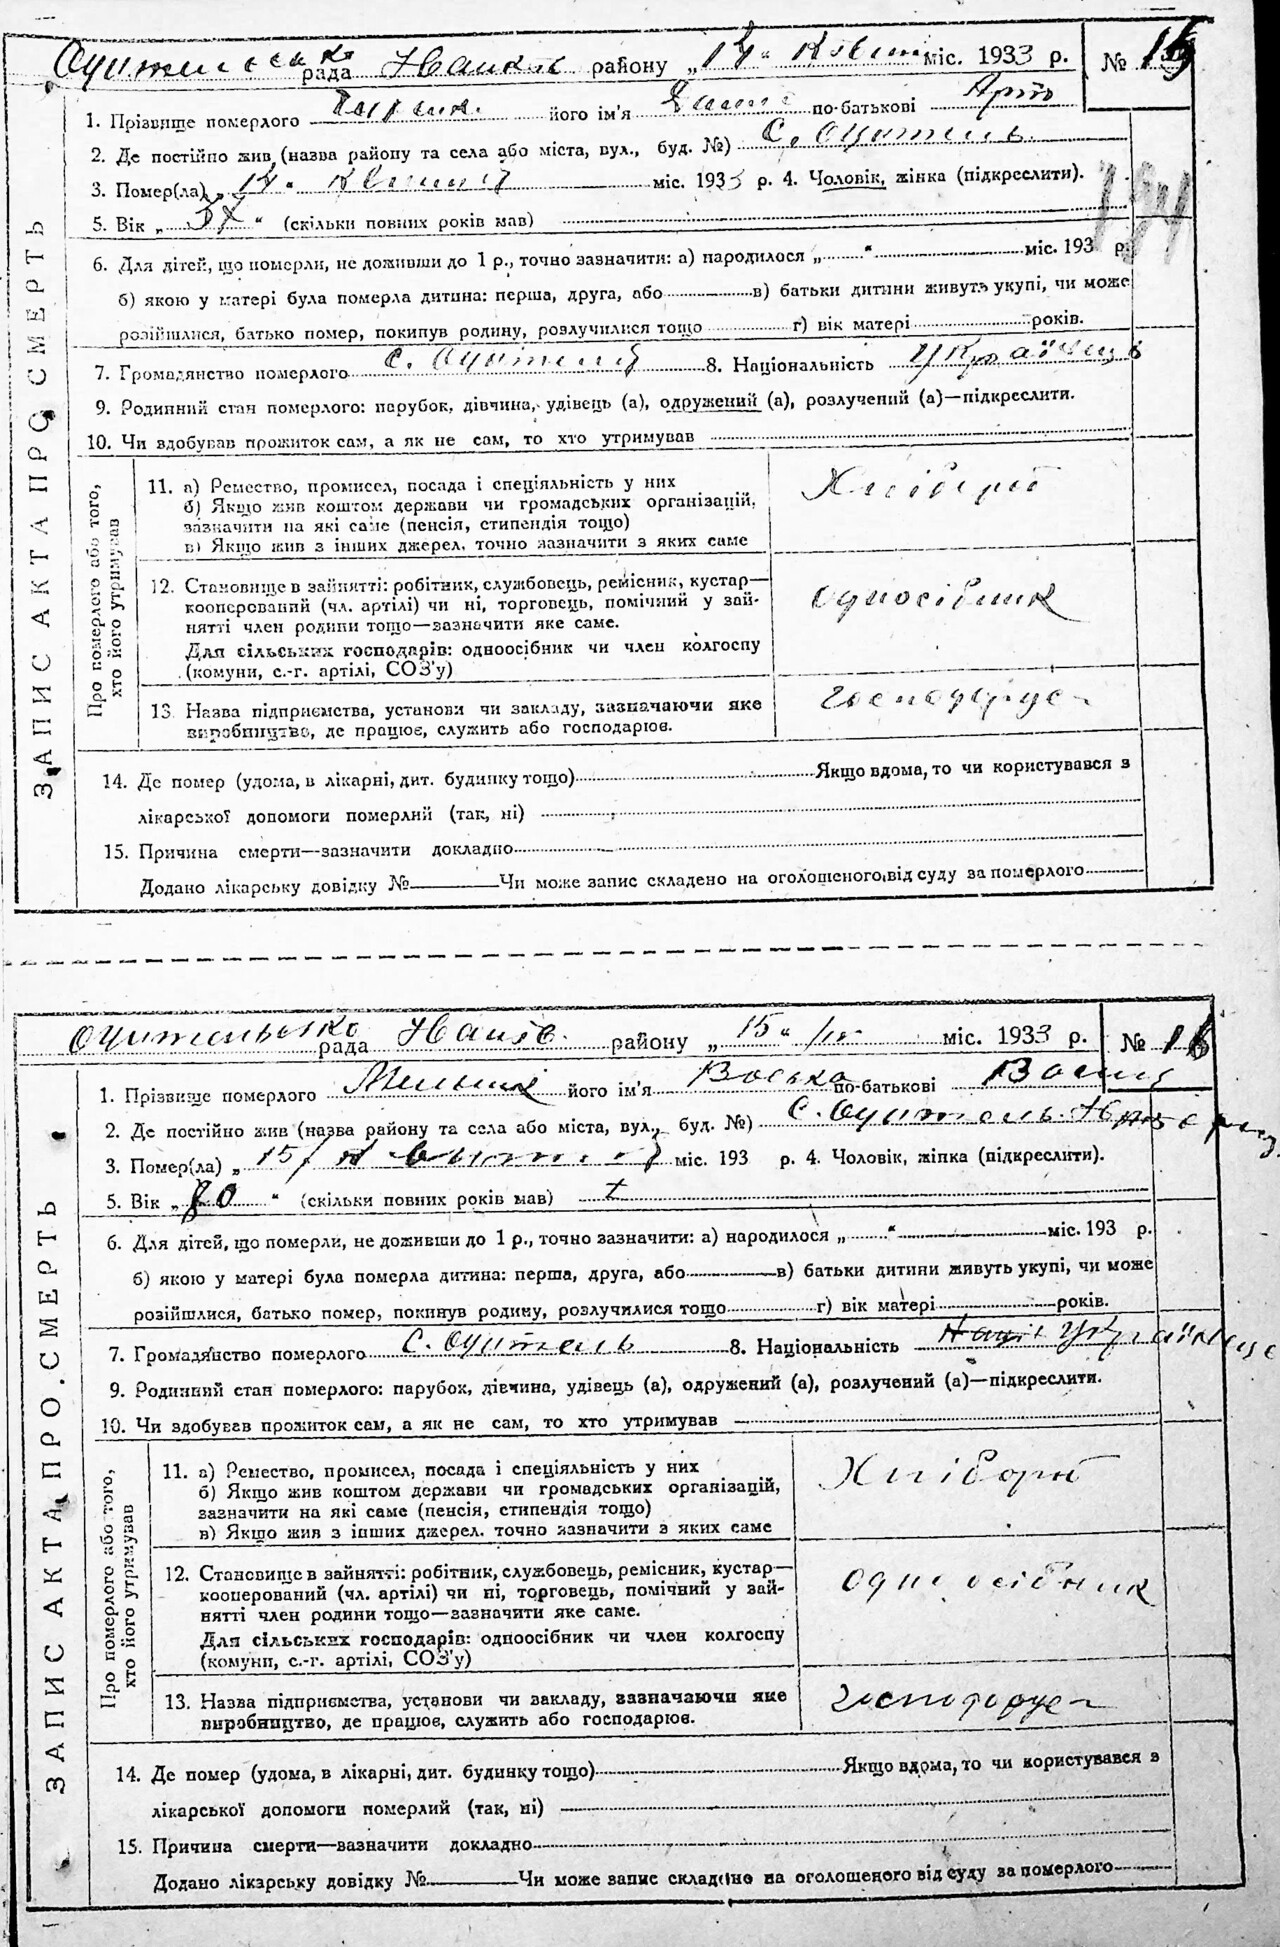 рада району „14“ Квітня міс. 1933 р. №
ЗАПИС АКТА ПРО СМЕРТЬ
1. Прізвище померлого його ім'я по-батькові
2. Де постійно жив (назва району та села або міста, вул., буд. №) с. Оцитель
3. Помер(ла) „14“ Квітня міс. 1933 р. 4. Чоловік, жінка (підкреслити).
194
5. Вік „37“ (скільки повних років мав)
6. Для дітей, що померли, не доживши до 1 р., точно зазначити: а) народилося „ “ міс. 193 р.
б) якою у матері була померла дитина: перша, друга, або в) батьки дитини живуть укупі, чи може
розійшлися, батько помер, покинув родину, розлучилися тощо г) вік матері років.
7. Громадянство померлого с. 8. Національність Українець
9. Родинний стан померлого: парубок, дівчина, удівець (а), одружений (а), розлучений (а)—підкреслити.
10. Чи здобував прожиток сам, а як не сам, то хто утримував
Про померлого або того, хто його утримував
11. а) Ремество, промисел, посада і спеціяльність у них
б) Якщо жив коштом держави чи громадських організацій,
зазначити на які саме (пенсія, стипендія тощо)
в) Якщо жив з інших джерел, точно зазначити з яких саме
Хлібороб
12. Становище в зайнятті: робітник, службовець, ремісник, кустар—
кооперований (чл. артілі) чи ні, торговець, помічний у зай-
нятті член родини тощо—зазначити яке саме.
Для сільських господарів: одноосібник чи член колгоспу
(комуни, с.-г. артілі, СОЗ'у)
одноосібник
13. Назва підприємства, установи чи закладу, зазначаючи яке
виробництво, де працює, служить або господарює.
господарує
14. Де помер (удома, в лікарні, дит. будинку тощо) Якщо вдома, то чи користувався з
лікарської допомоги померлий (так, ні)
15. Причина смерти—зазначити докладно
Додано лікарську довідку № Чи може запис складено на оголошеного від суду за померлого
рада району „15“ IV міс. 1933 р. №
ЗАПИС АКТА ПРО СМЕРТЬ
1. Прізвище померлого Мельник його ім'я по-батькові
2. Де постійно жив (назва району та села або міста, вул., буд. №) с. Оцитель
3. Помер(ла) „15 міс. 193 р. 4. Чоловік, жінка (підкреслити).
5. Вік „80“ (скільки повних років мав)
6. Для дітей, що померли, не доживши до 1 р., точно зазначити: а) народилося „ “ міс. 193 р.
б) якою у матері була померла дитина: перша, друга, або в) батьки дитини живуть укупі, чи може
розійшлися, батько помер, покинув родину, розлучилися тощо г) вік матері років.
7. Громадянство померлого с. Оцитель 8. Національність Українец
9. Родинний стан померлого: парубок, дівчина, удівець (а), одружений (а), розлучений (а)—підкреслити.
10. Чи здобував прожиток сам, а як не сам, то хто утримував
Про померлого або того, хто його утримував
11. а) Ремество, промисел, посада і спеціяльність у них
б) Якщо жив коштом держави чи громадських організацій,
зазначити на які саме (пенсія, стипендія тощо)
в) Якщо жив з інших джерел, точно зазначити з яких саме
Хлібороб
12. Становище в зайнятті: робітник, службовець, ремісник, кустар—
кооперований (чл. артілі) чи ні, торговець, помічний у зай-
нятті член родини тощо—зазначити яке саме.
Для сільських господарів: одноосібник чи член колгоспу
(комуни, с.-г. артілі, СОЗ'у)
одноосібник
13. Назва підприємства, установи чи закладу, зазначаючи яке
виробництво, де працює, служить або господарює.
господарує
14. Де помер (удома, в лікарні, дит. будинку тощо) Якщо вдома, то чи користувався з
лікарської допомоги померлий (так, ні)
15. Причина смерти—зазначити докладно
Додано лікарську довідку № Чи може запис складено на оголошеного від суду за померлого